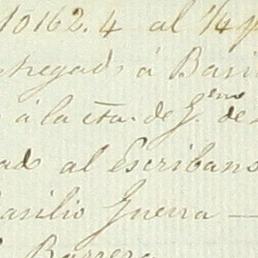 10162.4 al 1/4 p
ntregado á Basi
á la cta. de G.eme de
ad al Escribano
Basilio Guerra —
Barrera